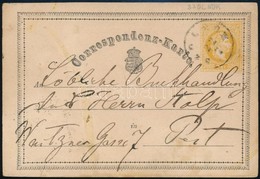 Correspondenz-Karte.
Löbliche Buchhandlung
des Herrn Kolp
Waitzner Gasse 7 Pest